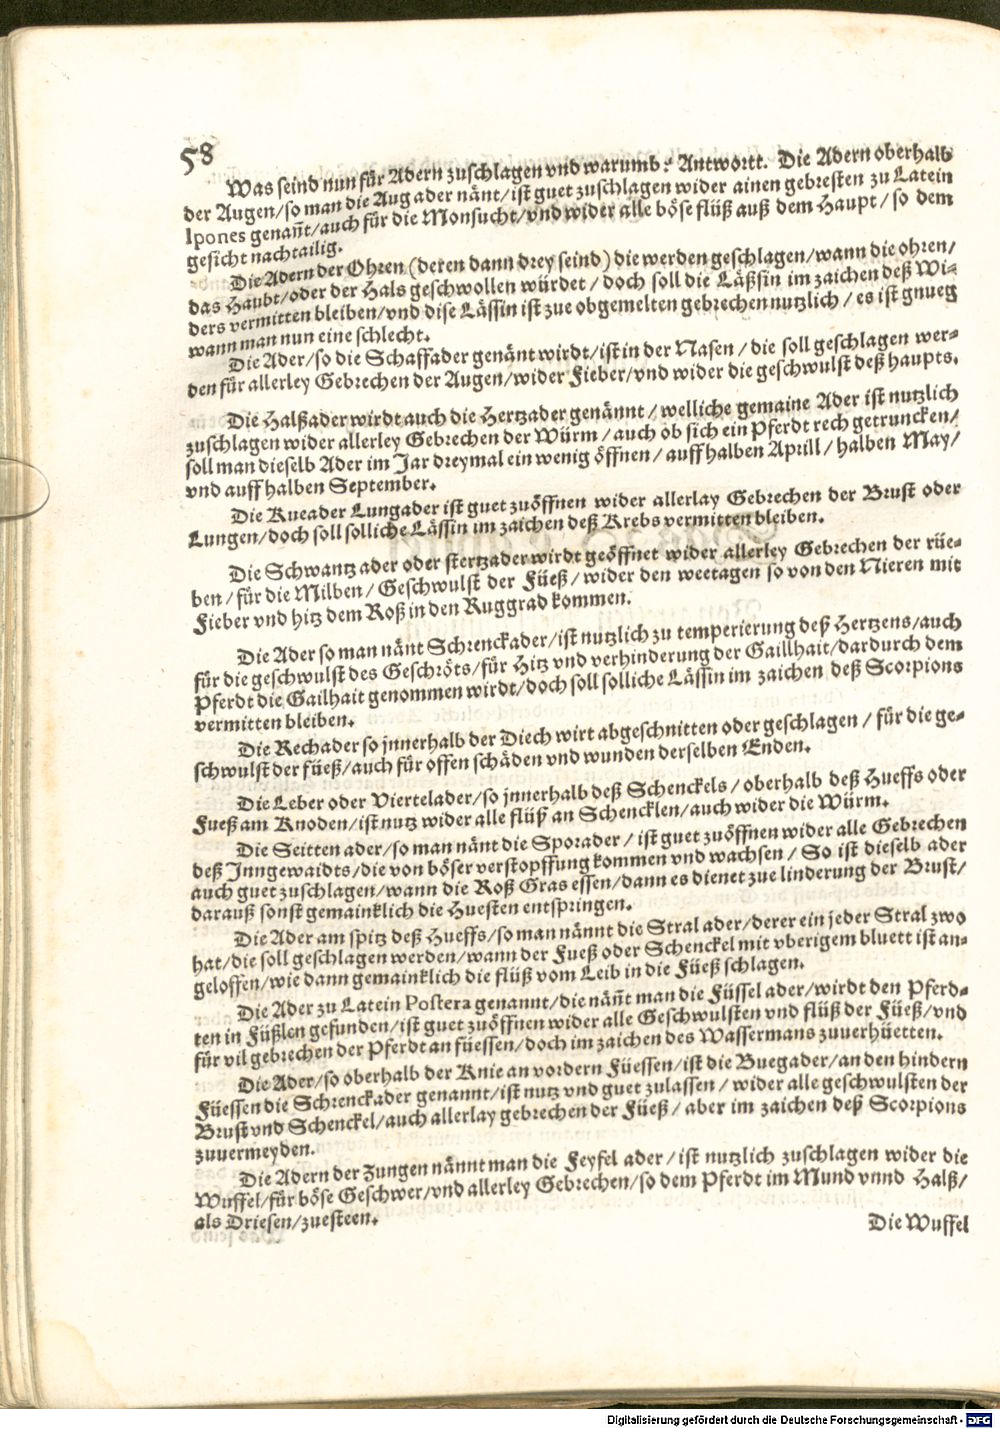 58
Was seind nun für Adern zuschlagen vnd warumb? Antwortt. Die Adern oberhalb
der Augen/so man die Aug ader nänt/ist guet zuschlagen wider ainen gebresten zu Latein
Ipones genañt/auch für die Monsucht/vnd wider alle böse flüß auß dem Haupt/so dem
gesicht nachtailig.
Die Adern der Ohren (deren dann drey seind) die werden geschlagen/wann die ohren/
das Haubt/oder der Hals geschwollen würdet/doch soll die Läßsin im zaichen deß Wi-
ders vermitten bleiben/vnd dise Lässin ist zue obgemelten gebrechen nutzlich/es ist gnueg
wann man nun eine schlecht.
Die Ader/so die Schaffader genänt wirdt/ist in der Nasen/die soll geschlagen wer-
den für allerley Gebrechen der Augen/wider Fieber/vnd wider die geschwulst deß haupts.
Die Halßader wirdt auch die Hertzader genännt/welliche gemaine Ader ist nutzlich
zuschlagen wider allerley Gebrechen der Würm/auch ob sich ein Pferdt rech getruncken/
soll man dieselb Ader im Jar dreymal ein wenig öffnen/auff halben Aprill/halben May/
vnd auff halben September.
Die Kueader Lungader ist guet zuöffnen wider allerlay Gebrechen der Brust oder
Lungen/doch soll solliche Lässin im zaichen deß Krebs vermitten bleiben.
Die Schwantz ader oder stertzader wirdt geöffnet wider allerley Gebrechen der rüe-
ben/für die Milben/Geschwulst der Füeß/wider den weetagen so von den Nieren mit
Fieber vnd hitz dem Roß in den Ruggrad kommen.
Die Ader so man nänt Schrenckader/ist nutzlich zu temperierung deß Hertzens/auch
für die geschwulst des Geschröts/für Hitz vnd verhinderung der Gaillhait/dardurch dem
Pferdt die Gailhait genommen wirdt/doch soll solliche Lässin im zaichen deß Scorpions
vermitten bleiben.
Die Rechader so jnnerhalb der Diech wirt abgeschnitten oder geschlagen/für die ge-
schwulst der füeß/auch für offen schäden vnd wunden derselben Enden.
Die Leber oder Viertelader/so jnnerhalb deß Schenckels/oberhalb deß Hueffs oder
Fueß am Knoden/ist nutz wider alle flüß an Schencklen/auch wider die Würm.
Die Seitten ader/so man nänt die Sporader/ist guet zuöffnen wider alle Gebrechen
deß Jnngewaidts/die von böser verstopffung kommen vnd wachsen/So ist dieselb ader
auch guet zuschlagen/wann die Roß Gras essen/dann es dienet zue linderung der Brust/
darauß sonst gemainklich die Huesten entspringen.
Die Ader am spitz deß Hueffs/so man nännt die Stral ader/derer ein jeder Stral zwo
hat/die soll geschlagen werden/wann der Fueß oder Schenckel mit vberigem bluett ist an-
geloffen/wie dann gemainklich die flüß vom Leib in die Füeß schlagen.
Die Ader zu Latein Postera genannt/die näñt man die Füssel ader/wirdt den Pferd-
ten in Füßlen gefunden/ist guet zuöffnen wider alle Geschwulsten vnd flüß der Füeß/vnd
für vil gebrechen der Pferdt an füessen/doch im zaichen des Wassermans zuuerhüetten.
Die Ader/so oberhalb der Knie an vordern Füessen/ist die Buegader/an den hindern
Füessen die Schrenckader genannt/ist nutz vnd guet zulassen/wider alle geschwulsten der
Brust vnd Schenckel/auch allerlay gebrechen der Füeß/aber im zaichen deß Scorpions
zuuermeyden.
Die Adern der Zungen nännt man die Feyfel ader/ist nutzlich zuschlagen wider die
Wuffel/für böse Geschwer/vnd allerley Gebrechen/so dem Pferdt im Mund vnnd Halß/
als Driesen/zuesteen.
Die Wuffel
Digitalisierung gefördert durch die Deutsche Forschungsgemeinschaft - DFG